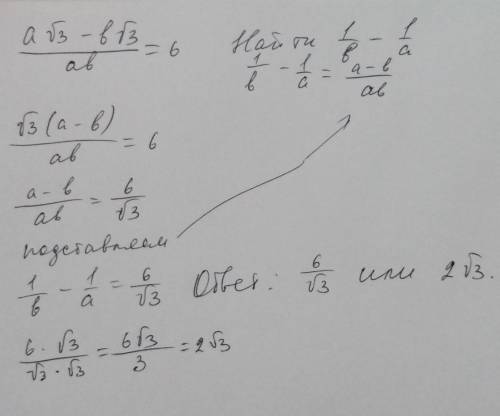 (a√3 − b√3)/ab = 6
Найти 1/b − 1/a
1/b − 1/a = (a−b)/ab
√3(a−b)/ab = 6
(a−b)/ab = 6/√3
подставляем
1/b − 1/a = 6/√3
Ответ: 6/√3 или 2√3.
(6·√3)/(√3·√3) = 6√3/3 = 2√3